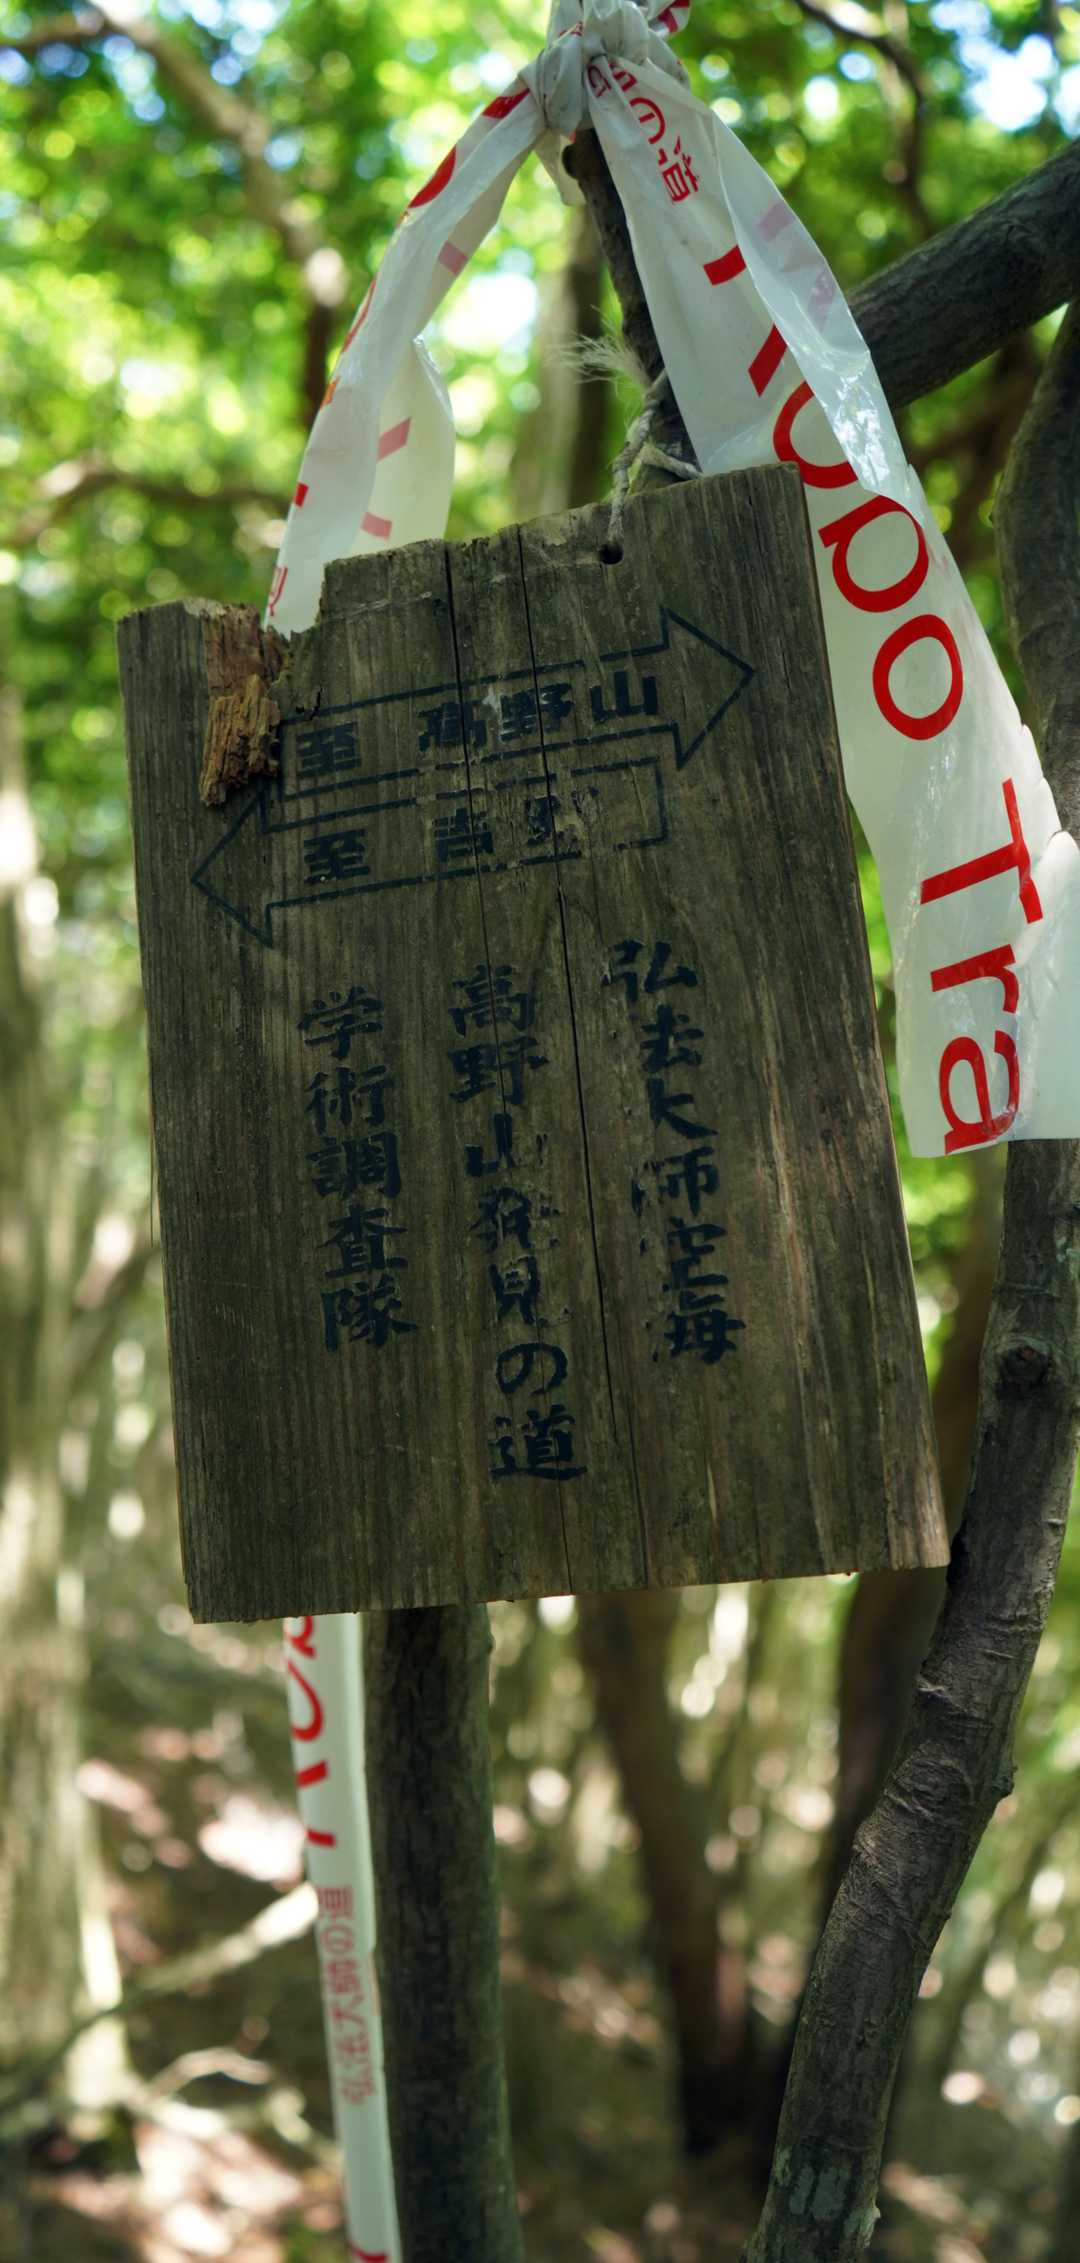 至 高野山
至 吉野
弘法大師空海
高野山発見の道
学術調査隊
の道
Tra
弘法大師の道